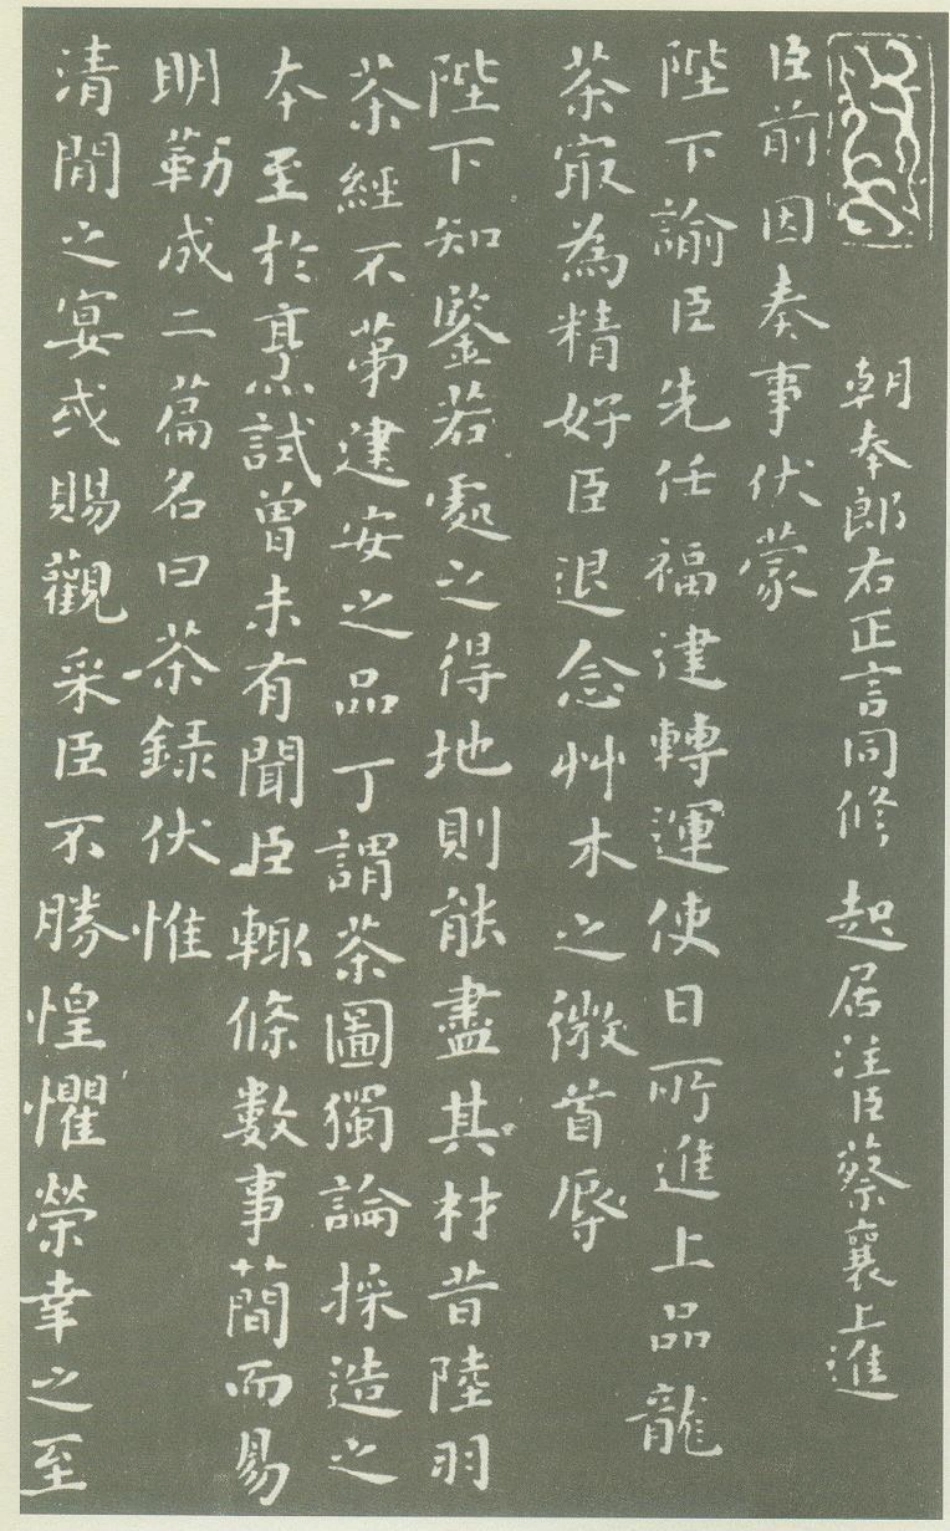 朝奉郎右正言同修起居注臣蔡襄上進
臣前因奏事伏蒙
陛下諭臣先任福建轉運使日所進上品龍
茶寂為精好臣退念艸木之微首辱
陛下知鑒若處之得地則能盡其材昔陸羽
茶經不苐建安之品丁謂茶圖獨論採造之
本至於烹試曾未有聞臣輒條數事簡而易
明勒成二篇名曰茶録伏惟
清閒之宴或賜觀采臣不勝惶懼榮幸之至